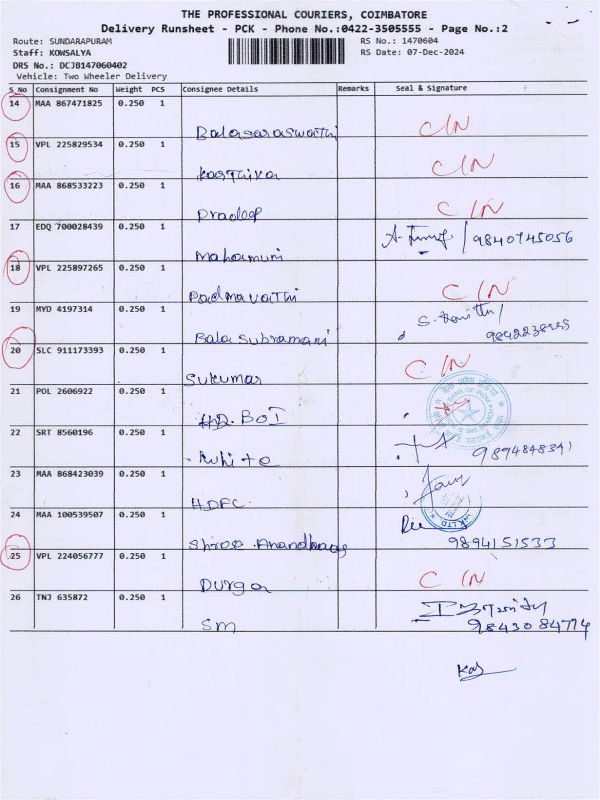 THE PROFESSIONAL COURIERS, COIMBATORE
Delivery Runsheet - PCK - Phone No.:0422-3505555 - Page No.:2
Route: SUNDARAPURAM RS No.: 1470604
Staff: KOWSALYA RS Date: 07-Dec-2024
DRS No.: DCJB147060402
Vehicle: Two Wheeler Delivery
S No Consignment No Weight PCS Consignee Details Remarks Seal & Signature
14 MAA 867471825 0.250 1
Balasaraswathi C/N
15 VPL 225829534 0.250 1
Karthika C/N
16 MAA 868533223 0.250 1
Pradeep C/N
17 EDQ 700028439 0.250 1
Mahamuni 9840745056
18 VPL 225897265 0.250 1
Padmavathi C/N
19 MYD 4197314 0.250 1
Bala Subramani
20 SLC 911173393 0.250 1
Sukumar C/N
21 POL 2606922 0.250 1
BOI
22 SRT 8560196 0.250 1
23 MAA 868423039 0.250 1
HDFC
24 MAA 100539507 0.250 1
9894151533
25 VPL 224056777 0.250 1
Durga C/N
26 TNJ 635872 0.250 1
SM